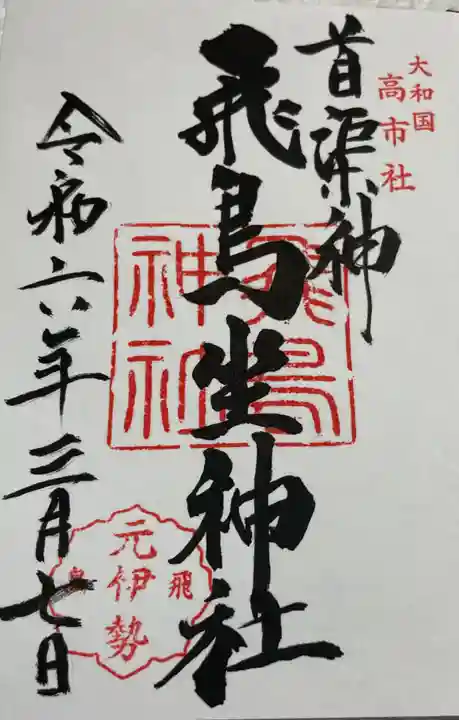 大和国
高市社
首渠神
飛鳥坐神社
飛鳥
神社
元伊勢
飛鳥
令和六年三月七日